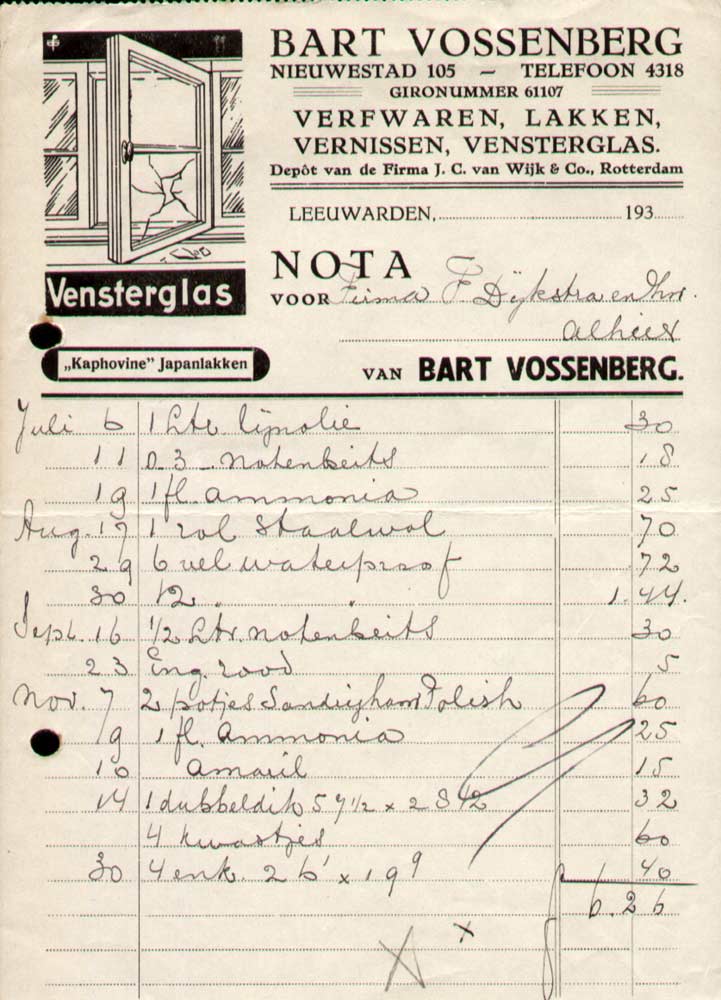 BART VOSSENBERG
NIEUWESTAD 105 — TELEFOON 4318
GIRONUMMER 61107
VERFWAREN, LAKKEN,
VERNISSEN, VENSTERGLAS.
Depôt van de Firma J. C. van Wijk & Co., Rotterdam
LEEUWARDEN, 193
Vensterglas
„Kaphovine” Japanlakken
NOTA
VOOR Firma F Dijkstra en Znn.
Alhier
VAN BART VOSSENBERG.
Juli 6 1 Ltr lijnolie 30
11 0.3 - notenbeits 18
19 1 fl. ammonia 25
Aug. 17 1 rol Staalwol 70
29 6 vel waterproof 72
30 12 " " 1.44.
Sept. 16 1/2 Ltr. notenbeits 30
23 Eng. rood 5
Nov. 7 2 potjes Sandrigham Polish 60
9 1 fl. Ammonia 25
10 Amaril 15
14 1 dubbeldik 57 1/2 x 28 1/2 32
4 kwastjes 60
30 4 enk. 26 x 19 9 40
6.26